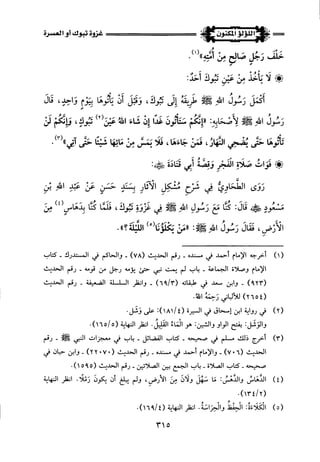 غزوة تبوك أو العسرة
اللؤلؤ المكنون
خَلْفَ رَجُلٍ صَالِحٍ مِنْ أُمَّتِهِ»(١).
❊ لَا يَأْخُذْ مِنْ عَيْنِ تَبُوكَ أَحَدٌ:
أَكْمَلَ رَسُولُ اللهِ ﷺ طَرِيقَهُ إِلَى تَبُوكَ، وَقَبْلَ أَنْ يَأْتُوهَا بِيَوْمٍ وَاحِدٍ، قَالَ
رَسُولُ اللهِ ﷺ لِأَصْحَابِهِ: «إِنَّكُمْ سَتَأْتُونَ غَدًا إِنْ شَاءَ اللهُ عَيْنَ(٢) تَبُوكَ، وَإِنَّكُمْ لَنْ
تَأْتُوهَا حَتَّى يُضْحِيَ النَّهَارُ، فَمَنْ جَاءَهَا، فَلَا يَمَسَّ مِنْ مَائِهَا شَيْئًا حَتَّى آتِيَ»(٣).
❊ فَوَاتُ صَلَاةِ الْفَجْرِ وَقِصَّةُ أَبِي قَتَادَةَ ﵁:
رَوَى الطَّحَاوِيُّ فِي شَرْحِ مُشْكِلِ الْآثَارِ بِسَنَدٍ حَسَنٍ عَنْ عَبْدِ اللهِ بْنِ
مَسْعُودٍ ﵁ قَالَ: كُنَّا مَعَ رَسُولِ اللهِ ﷺ فِي غَزْوَةِ تَبُوكَ، فَلَمَّا كُنَّا بِدَهَاسٍ(٤) مِنَ
الْأَرْضِ، فَقَالَ رَسُولُ اللهِ ﷺ: «مَنْ يَكْلَؤُنَا(٥) اللَّيْلَةَ»؟
(١) أخرجه الإمام أحمد في مسنده - رقم الحديث (٧٨) - والحاكم في المستدرك - كتاب
الإمام وصلاة الجماعة - باب لم يمت نبي حتى يؤمه رجل من قومه - رقم الحديث
(٩٢٣) - وابن سعد في طبقاته (٦٩/٣) - وانظر السلسلة الضعيفة - رقم الحديث
(٢٦٥٤) للألباني رَحِمَهُ الله.
(٢) في رواية ابن إسحاق في السيرة (١٨١/٤): على وَشَلٍ.
والوَشَل: بفتح الواو والشين: هو المَاءُ القَلِيلُ. انظر النهاية (١٦٥/٥).
(٣) أخرج ذلك مسلم في صحيحه - كتاب الفضائل - باب في معجزات النبي ﷺ - رقم
الحديث (٧٠٦) - والإمام أحمد في مسنده - رقم الحديث (٢٢٠٧٠) - وابن حبان في
صحيحه - كتاب الصلاة - باب الجمع بين الصلاتين - رقم الحديث (١٥٩٥).
(٤) الدَّهَاسُ والدَّهْسُ: مَا سَهُلَ ولَانَ مِنَ الأرضِ، ولم يبلغ أن يكونَ رَمْلًا. انظر النهاية
(١٣٤/٢).
(٥) الكَلَاءَةُ: الحِفْظُ والحِرَاسَةُ. انظر النهاية (١٦٩/٤).
٣١٥